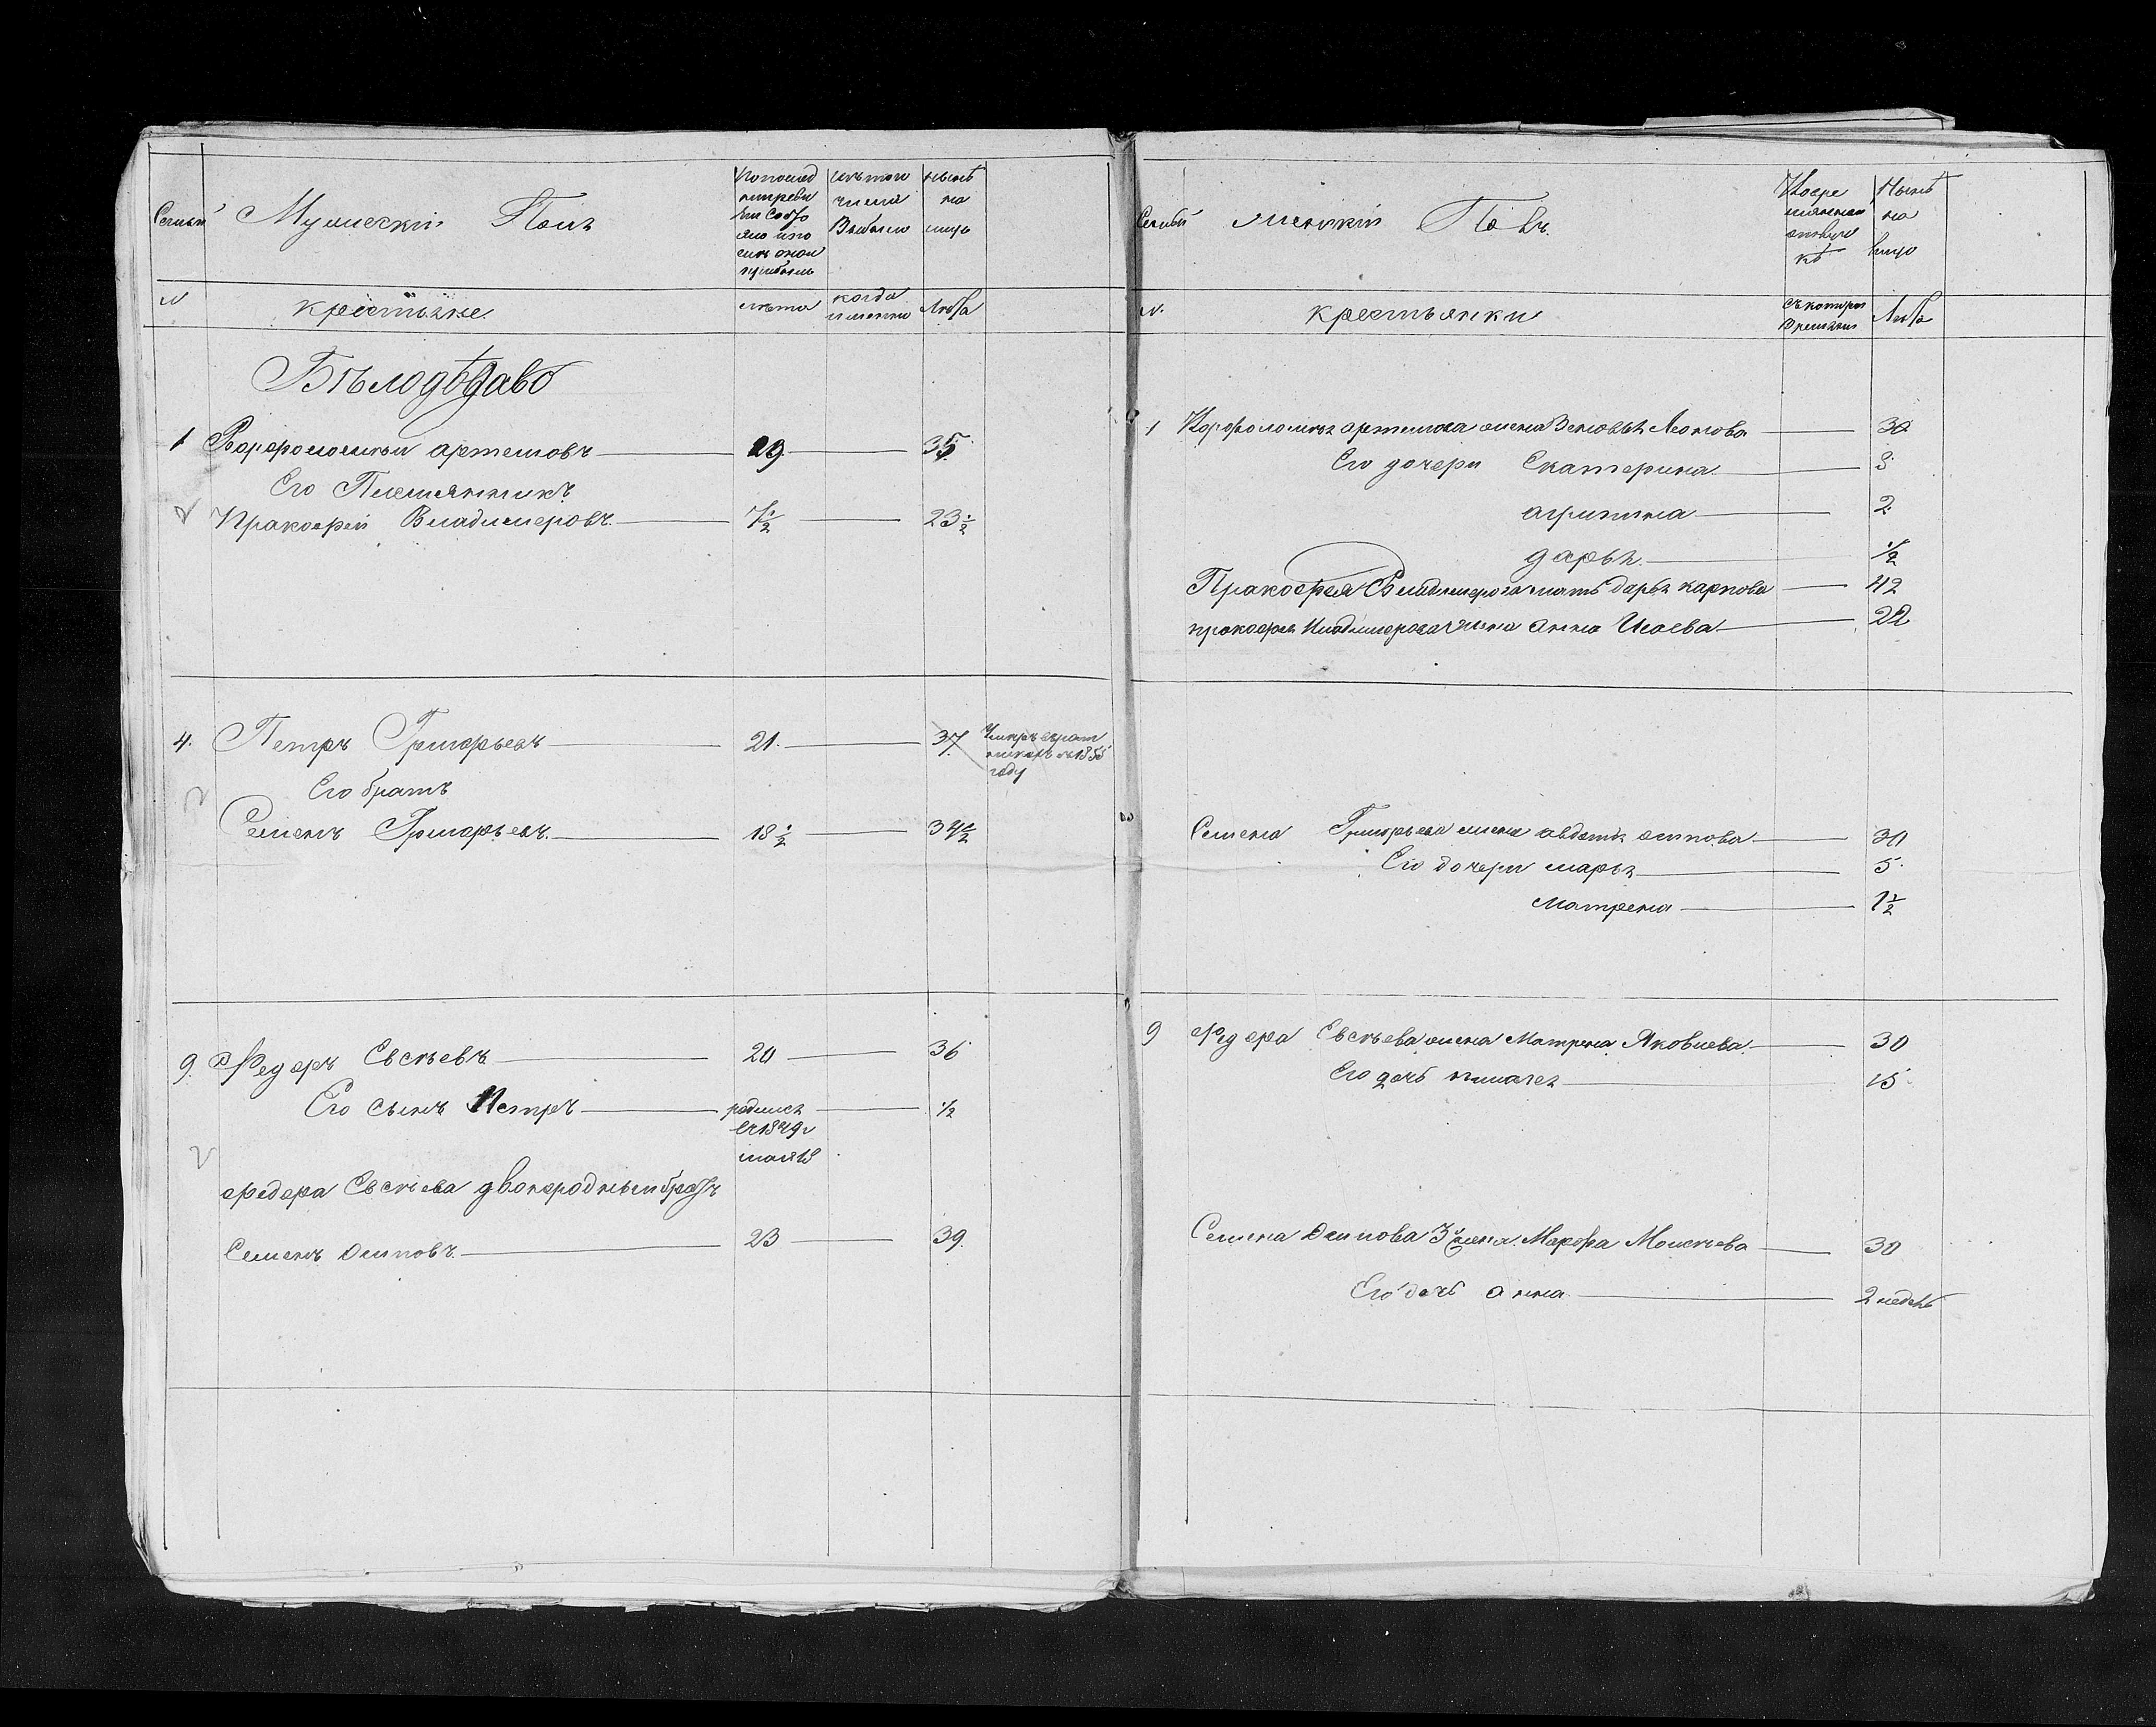 Семьи
Мужескій Полъ
По послед
ней реви
зіи состо
яло и по
слѣ оной
прибыло
изъ того
числа
Выбыло
нынѣ
на
лицо
N
крестьяне
лѣта
когда
именно
Лѣта
Бѣлодѣдово
1 Варфоломей Артемовъ 19 35
Его Племянникъ
Пракофей Владимеровъ 7½ 23½
4. Петръ Григорьевъ 21 37
Умеръ
въ 1855
году
Его братъ
Семенъ Григорьевъ 18½ 34½
9. Федоръ Евсѣевъ 20 36
Его сынъ Петръ родился ½
въ 1849
мая 18
Федора Евсѣева двоюродный братъ
Семенъ Осиповъ 23 39
Семьи
женскій Полъ
Во вре
менной
отлуч
кѣ
Нынѣ
на
лицо
N.
крестьянки
съ которого
времени
Лѣта
1 Ворфоломѣя Артемова жена Зеновья Леонова 30
Его дочери Екатерина 3
агрипина 2
дарья ½
Пракофея Владимерова мать дарья карпова 42
прокофея Владимерова жена Анна Исаева 22
Семена Григорьева жена авдотья осипова 30
Его дочери марья 5
матрена 1½
9 Федора Евсѣева жена Матрена Яковлева 30
Его дочь 15
Семена Осипова жена Марфа Моисѣева 30
Его дочь анна 2 недель